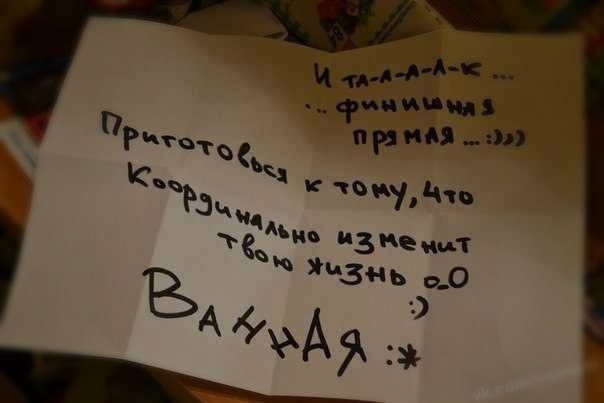 И та-а-а-а-к...
... финишная
прямая ...:)))
Приготовься к тому, что
Координально изменит
твою жизнь о_О
:)
Ванная :*
vk.com